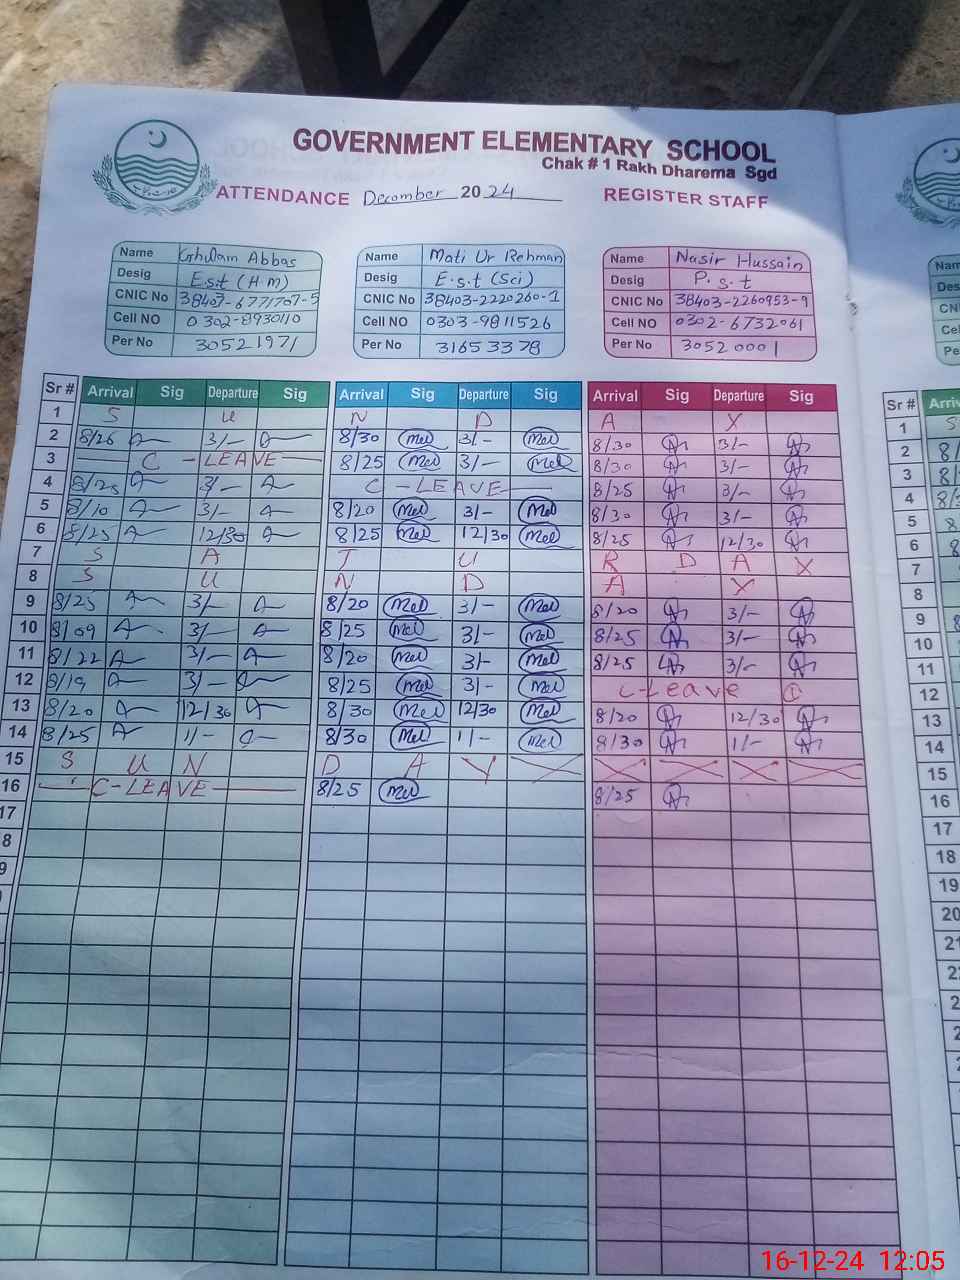 GOVERNMENT ELEMENTARY SCHOOL
Chak # 1 Rakh Dharema Sgd
ATTENDANCE December 2024 REGISTER STAFF
Name Ghulam Abbas Name Mati Ur Rehman Name Nasir Hussain
Desig E.s.t (H.m) Desig E.s.t (Sci) Desig P.s.t
CNIC No CNIC No 38403-2220260-1 CNIC No 38403-2260953-9
Cell NO 0302-8930110 Cell NO 0303-9811526 Cell NO 0302-6732061
Per No 30521971 Per No 31653378 Per No 30520001
Sr # Arrival Sig Departure Sig Arrival Sig Departure Sig Arrival Sig Departure Sig Sr #
1 S U N D A Y 1
2 8/26 3/- 8/30 3/- 8/30 3/- 2
3 C - LEAVE 8/25 3/- 8/30 3/- 3
4 8/25 3/- C - LEAVE 8/25 3/- 4
5 8/10 3/- 8/20 3/- 8/30 3/- 5
6 8/25 12/30 8/25 12/30 8/25 12/30 6
7 S A T U R D A Y 7
8 S U N D A Y 8
9 8/25 3/- 8/20 3/- 8/20 3/- 9
10 8/09 3/- 8/25 3/- 8/25 3/- 10
11 8/22 3/- 8/20 3/- 8/25 3/- 11
12 8/19 3/- 8/25 3/- C-Leave 12
13 8/20 12/30 8/30 12/30 8/20 12/30 13
14 8/25 1/- 8/30 1/- 8/30 1/- 14
15 S U N D A Y 15
16 C-LEAVE 8/25 8/25 16
17 17
8 18
9 19
20
21
16-12-24 12:05